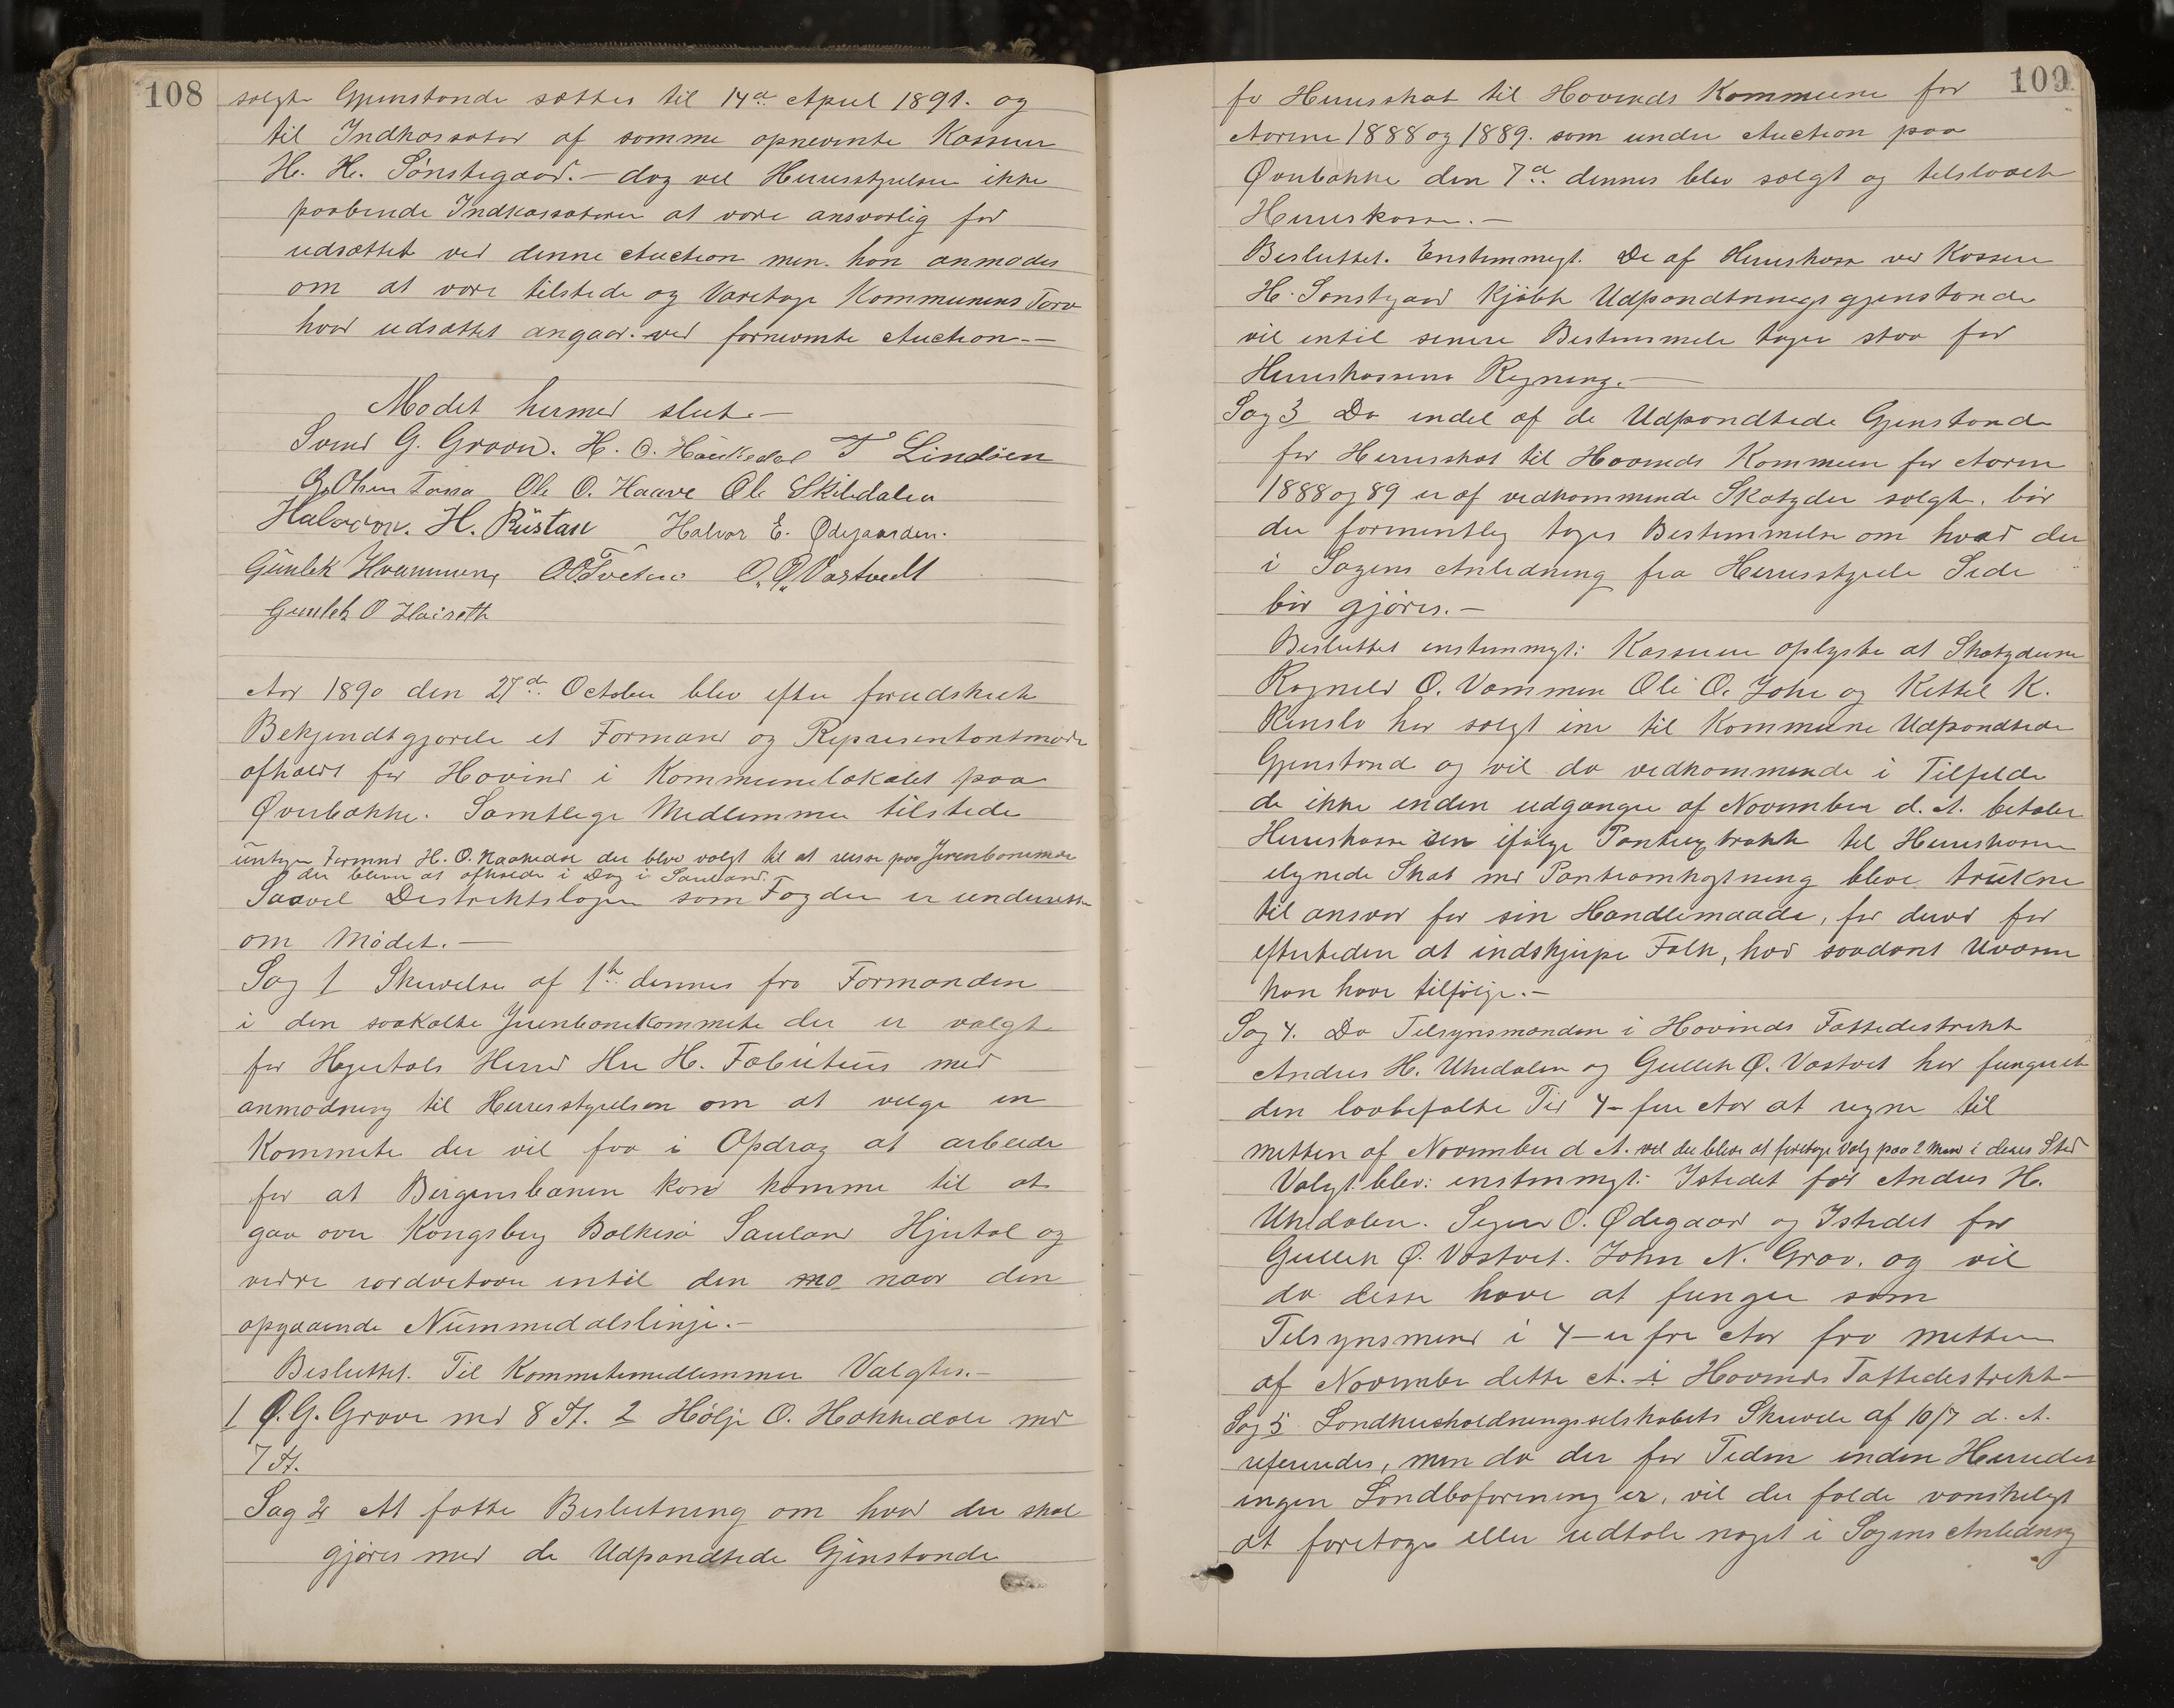 108
solgte Gjenstande sættes til 14de April 1891. og
til Indkassator af samme opnevnte Kasserer
H. H. Sønstegaard. – dog vil Herredsstyrelsen ikke
paabinde Indkassatoren at være ansvarlig for
udsættet ved denne Auction men han anmodes
om at være tilstede og Varetage Kommunens Tarv
hvad udsættet angaar. ved fornevnte Auction. –
Mødet hermed slut. –
Svend G. Graven. H. O. Haukedal T Lindöen
G. Olsen Ole O. Haave Ole Skibdalen
Halvor. H. Rüstan Halvor E. Ødegaarden.
Günlek Hvammen O O Tveten O. Ø. Vastvedt
Gunlek O Haiseth
Aar 1890 den 27de October blev efter forudskeet
Bekjendtgjørelse et Formand og Representantmøde
afholdt for Hovind i Kommunelokalet paa
Øverbakke. Samtlege Medlemmer tilstede
üntagen Formand H. O. Haakedal der blev valgt til at reise paa Jernbanemøde
der bliver at afholde i Dag i Sauland.
Saavel Distriktslægen som Fogden er underrettet
om Mødet. –
Sag 1 Skrivelse af 1ste dennes fra Formanden
i den saakalte Jernbanekommite der er valgt
for Hjertdals Herred Her H. Fabritius med
anmodning til Herredsstyrelsen om at velge en
Kommite der vil faa i Opdrag at arbeide
for at Bergensbanen kan komme til at
gaa over Kongsberg Bolkesø Sauland Hjertdal og
vedre nordvetover intil den naar den
opgaaende Nümmedalslinje. –
Besluttet. Til Kommitemedlemmer Valgtes. –
1 Ø. G. Grave med 8 St. 2 Hølje O. Hakkedale med
7 St.
Sag 2 At fatte Beslutning om hvad der skal
gjøres med de Udpandtede Gjenstande
109
for Herredsskat til Hovinds Kommune for
Aarene 1888 og 1889. som under Auction paa
Øverbakke den 7de dennes blev solgt og tilslaaet
Herredskassen. –
Besluttet. Enstemmigt. De af Herredskassen ved Kasserer
H. Sønstgaard Kjøbte Udpandtningsgjenstande
vil intil senere Bestemmelse tages staa for
Herredskassens Regning. –
Sag 3 Da endel af de Udpandtede Gjenstande
for Herredsskat til Hovinds Kommune for Aarene
1888 og 89 er af vedkommende Skatyder solgt. bør
der formentlig tages Bestemmelse om hvad der
i Sagens Anledning fra Herredsstyrelse Side
bør gjøres. –
Besluttet enstemmigt: Kasserer oplyste at Skatyderne
Ragnild O. Vammen Ole O. Johre og Kittel K.
Renslo har solgt ene til Kommune Udpandtede
Gjenstand og vil da vedkommende i Tilfælde
de ikke inden udgangen af November d. A. betaler
Herredskasse den ifølge Pantextrakt til Herredskassen
elignede Skat med Panteomkostning blive trükne
til ansvar for sin Handlemaade, for derved for
eftertiden at indskjærpe Folk, hvad saadant Uvæsen
kan have tilfølge. –
Sag 4. Da Tilsynsmanden i Hovinds Fattedestrikt
Andres H. Uheldalen og Gullek Ø. Vastvet har fungeret
den lovbefalte Tid 4 – fire Aar at regne til
metten af November d A. vil der blive at foretage Valg paa 2 Mand i deres Sted
Valgt blev: enstemmigt: Istedet før Andres H.
Uheldalen. Sigur O. Ødegaard og Istedet for
Gullek Ø. Vastvet. John N. Grav. og vil
da disse have at funger som
Tilsynsmend i 4 – er fire Aar fra metten
af November dette A. i Hovinds Fattedestrikt –
Sag 5. Landhusholdningsselskabets Skrivelse af 10/7 d. A.
refereredes, men da der for Tiden inden Herredet
ingen Landboforening er, vil der falde vanskeligt
at foretage eller udtale noget i Sagens Anledning